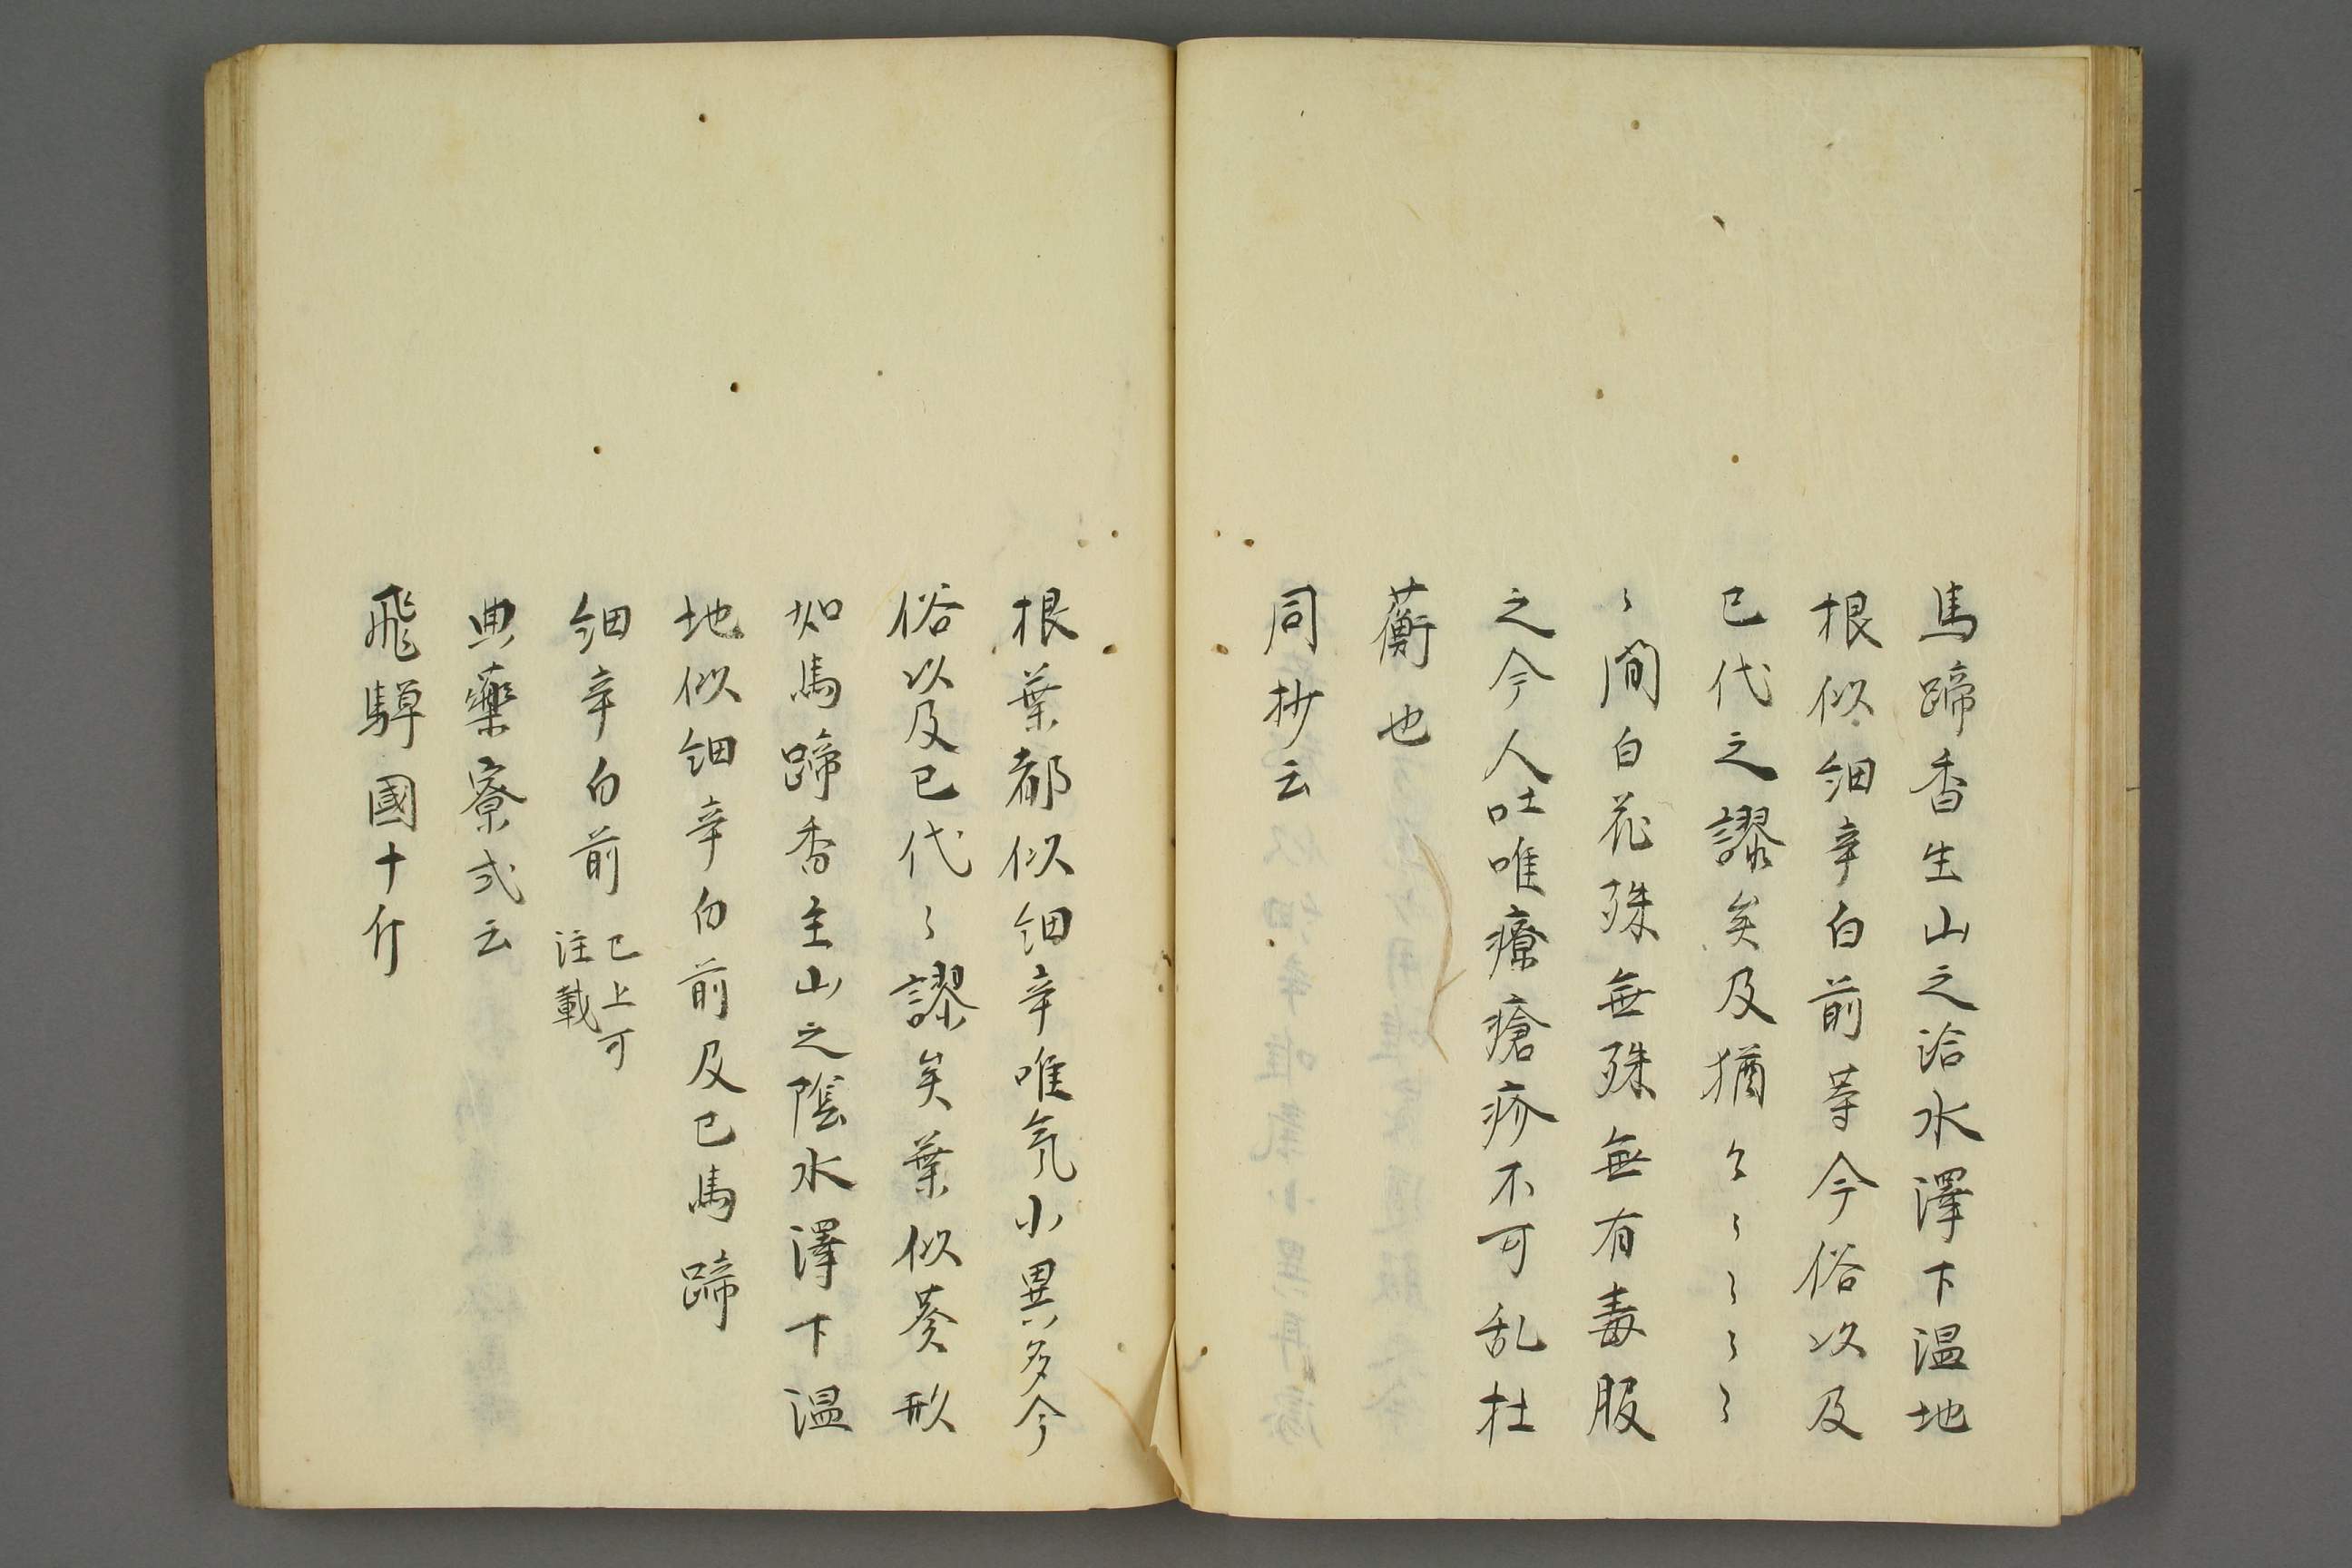 馬蹄香生山之洽水澤下温地
根似細辛白前等今俗以及
已代之謬矣及猶〻〻〻〻〻
〻間白花殊無殊無有毒服
之今人吐唯療瘡疥不可乱杜
蘅也
同抄云
根葉都似細辛唯氣小異多今
俗以及已代〻謬矣葉似葵形
如馬蹄香主山之陰水澤下温
地似細辛白前及已馬蹄
細辛白前已上可
注載
典藥寮式云
飛騨國十斤